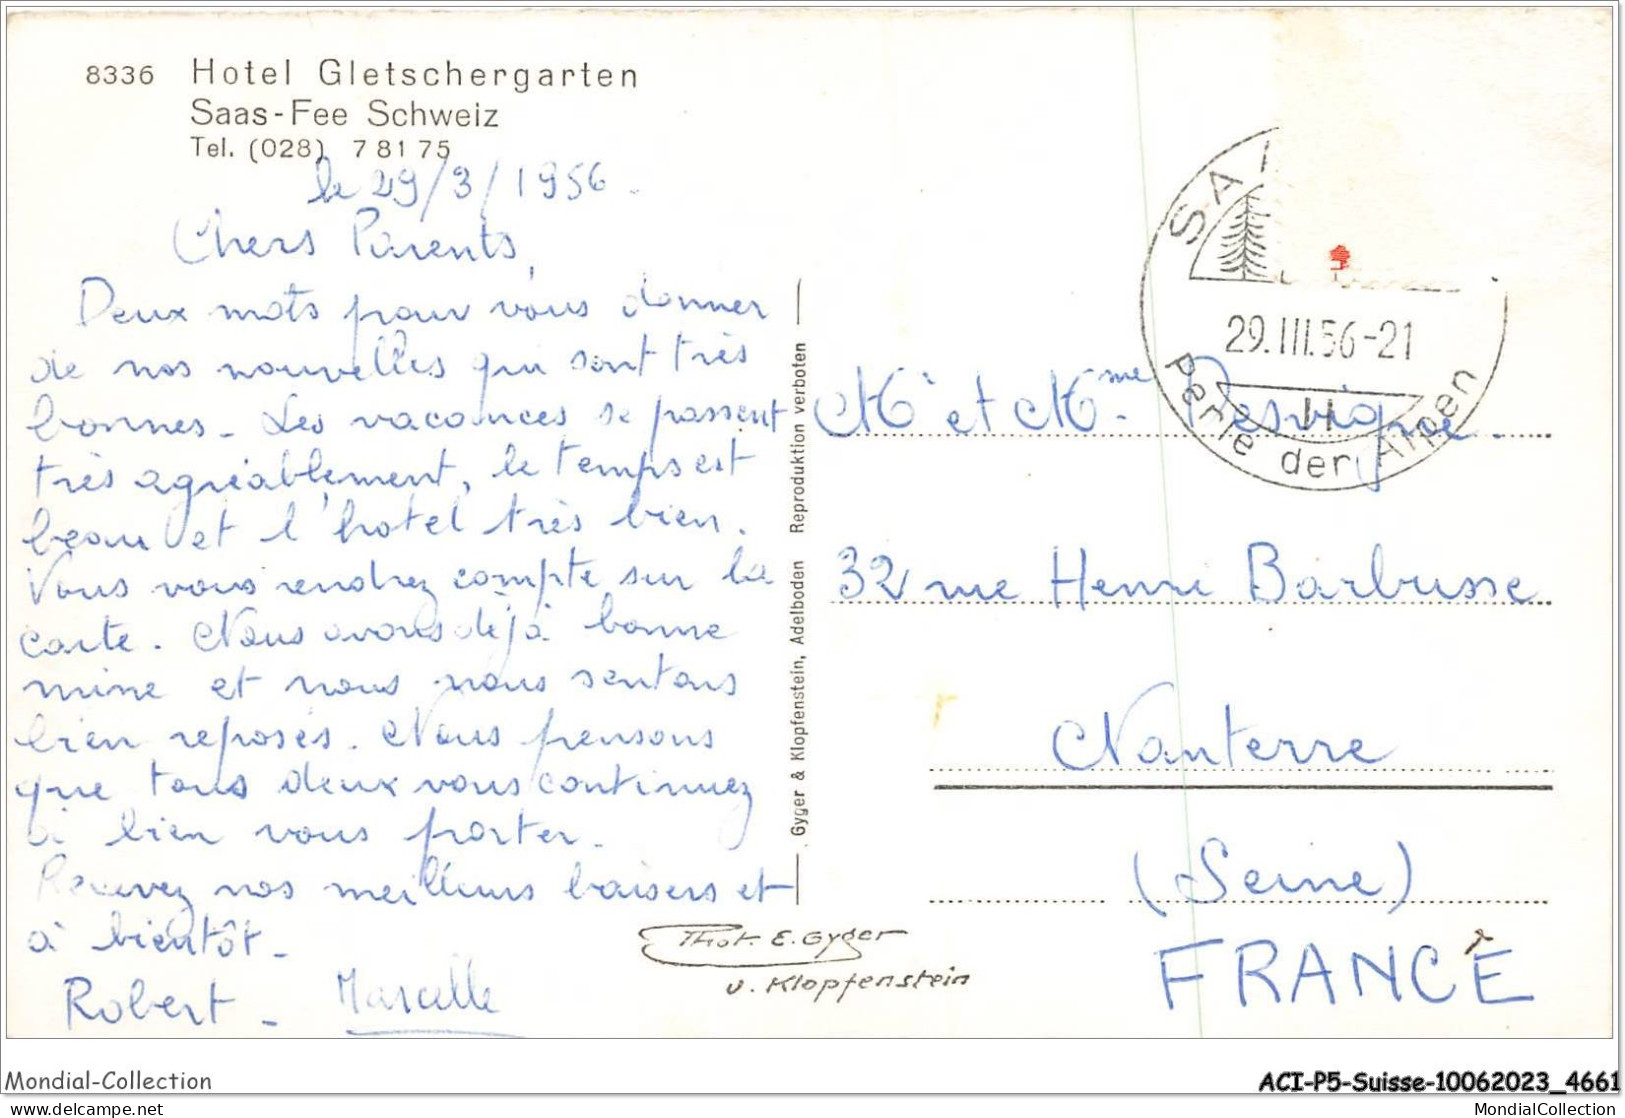 8336 Hotel Gletschergarten
Saas-Fee Schweiz
Tel. (028) 7 81 75
le 29/3/1956.
Chers Parents,
Deux mots pour vous donner
de nos nouvelles qui sont très
bonnes. Les vacances se passent
très agréablement, le temps est
beau et l'hotel très bien.
Vous vous rendrez compte sur la
carte. Nous avons déjà bonne
mine et nous nous sentons
bien reposés. Nous pensons
que tous deux vous continuez
à bien vous porter.
Recevez nos meilleurs baisers et
à bientôt.
Robert - Marcelle
Gyger & Klopfenstein, Adelboden Reproduktion verboten
Phot. E. Gyger
u. Klopfenstein
SA
29.III.56-21
Perle der Alpen
Mr et Mme Desvigne
32 rue Henri Barbusse
Nanterre
(Seine)
FRANCE
Mondial-Collection
ACI-P5-Suisse-10062023_4661
delcampe.net
MondialCollection